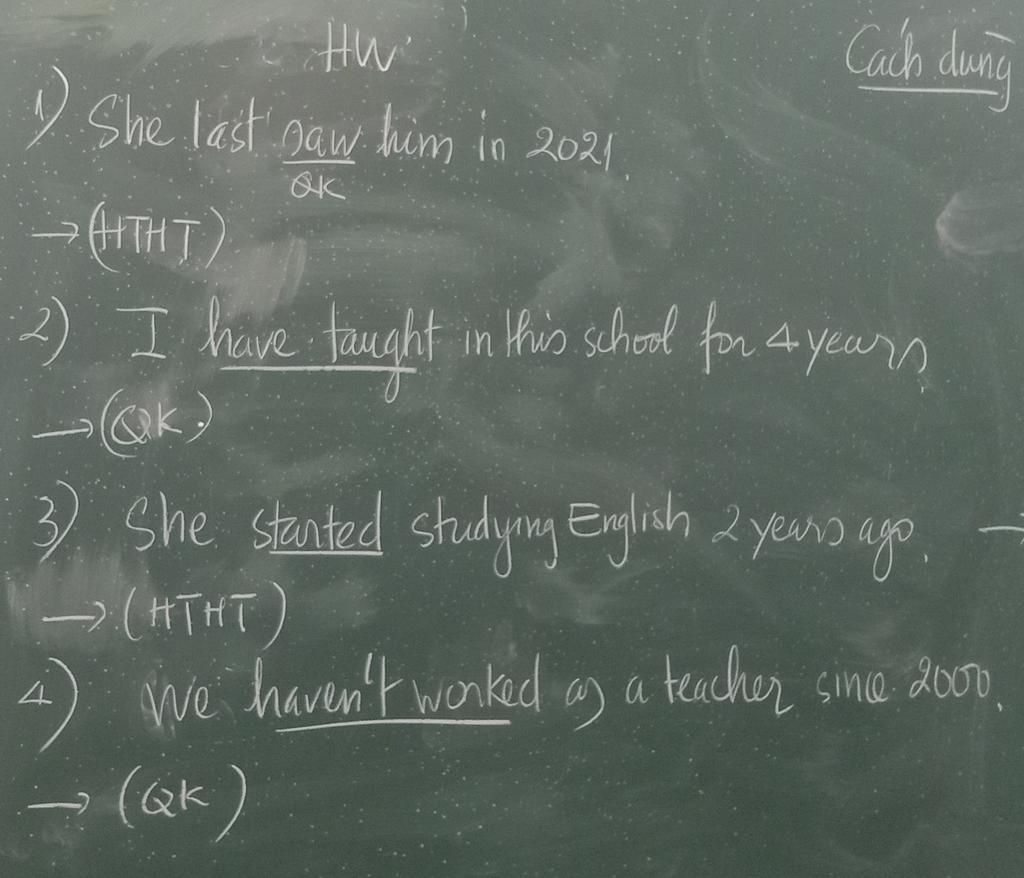 HW
Cách dùng
1) She last saw him in 2021.
QK
→ (HTHT)
2) I have taught in this school for 4 years
→ (QK)
3) She started studying English 2 years ago. →
→ (HTHT)
4) We haven't worked as a teacher since 2000.
→ (QK)